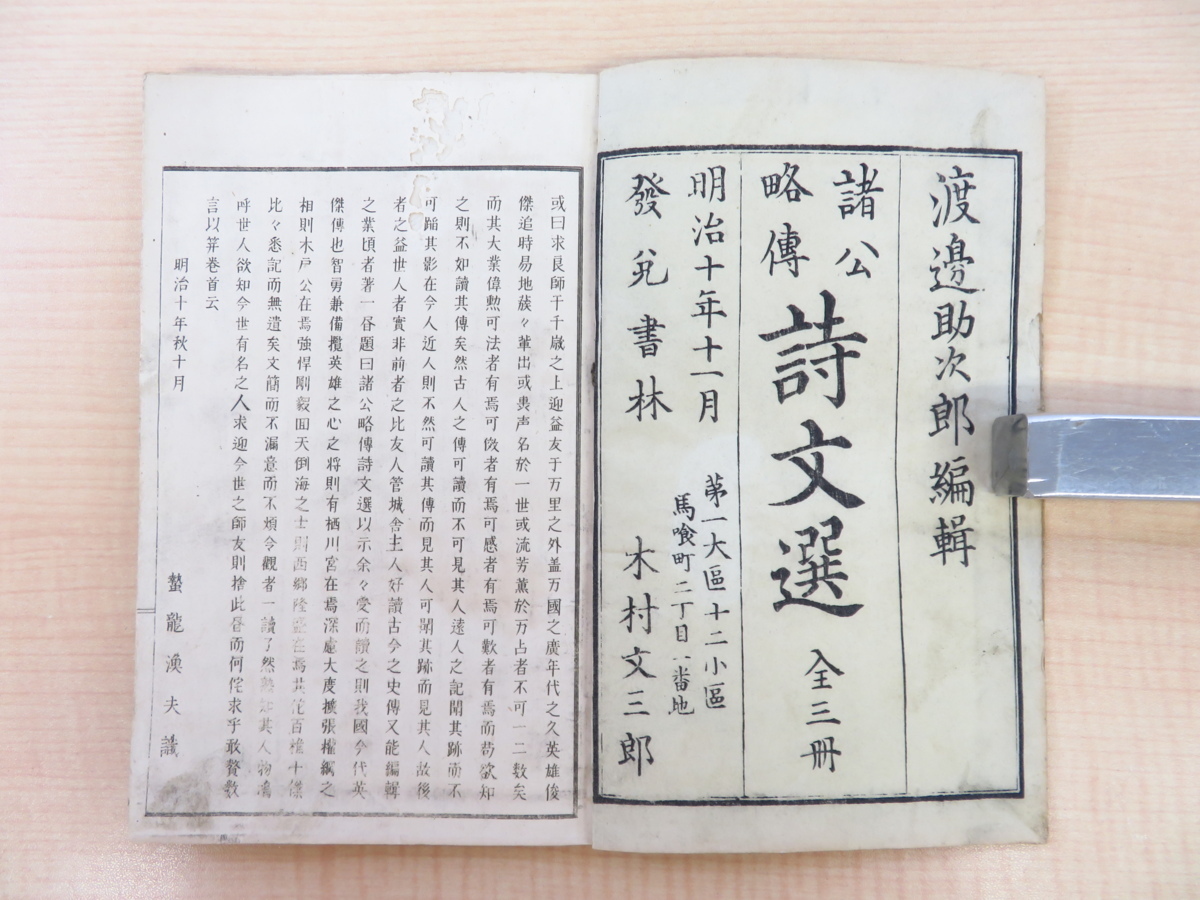 渡邊助次郎編輯
諸公
略傳
詩文選 全三冊
明治十年十一月
第一大區十二小區
馬喰町二丁目八番地
發兌書林 木村文三郎
或曰求良師于千歳之上迎益友于万里之外盖万國之廣年代之久英雄俊
傑追時易地蔟々輩出或畏声名於一世或流芳薫於万占者不可一二数矣
而其大業偉勲可法者有焉可倣者有焉可感者有焉可歎者有焉而苟欲知
之則不如讀其傳矣然古人之傳可讀而不可見其人遠人之記聞其跡而不
可蹈其影在今人近人則不然可讀其傳而見其人可聞其跡而見其人故後
者之益世人者實非前者之比友人管城舎主人好讀古今之史傳又能編輯
之業頃者著一各題曰諸公略傳詩文選以示余々受而讀之則我國今代英
傑傳也智勇兼備攬英雄之心之将則有栖川宮在焉深慮大度挾張權綱之
相則木戸公在焉強悍剛毅囬天倒海之士則西郷隆盛在焉其佗百機十傑
比々悉記而無遺矣文簡而不漏意而不煩令觀者一讀了然其人物
呼世人欲知今世有名之人求迎今世之師友則捨此昏而何侘求乎敢贅数
言以筭巻首云
明治十年秋十月
螯龍漢夫識